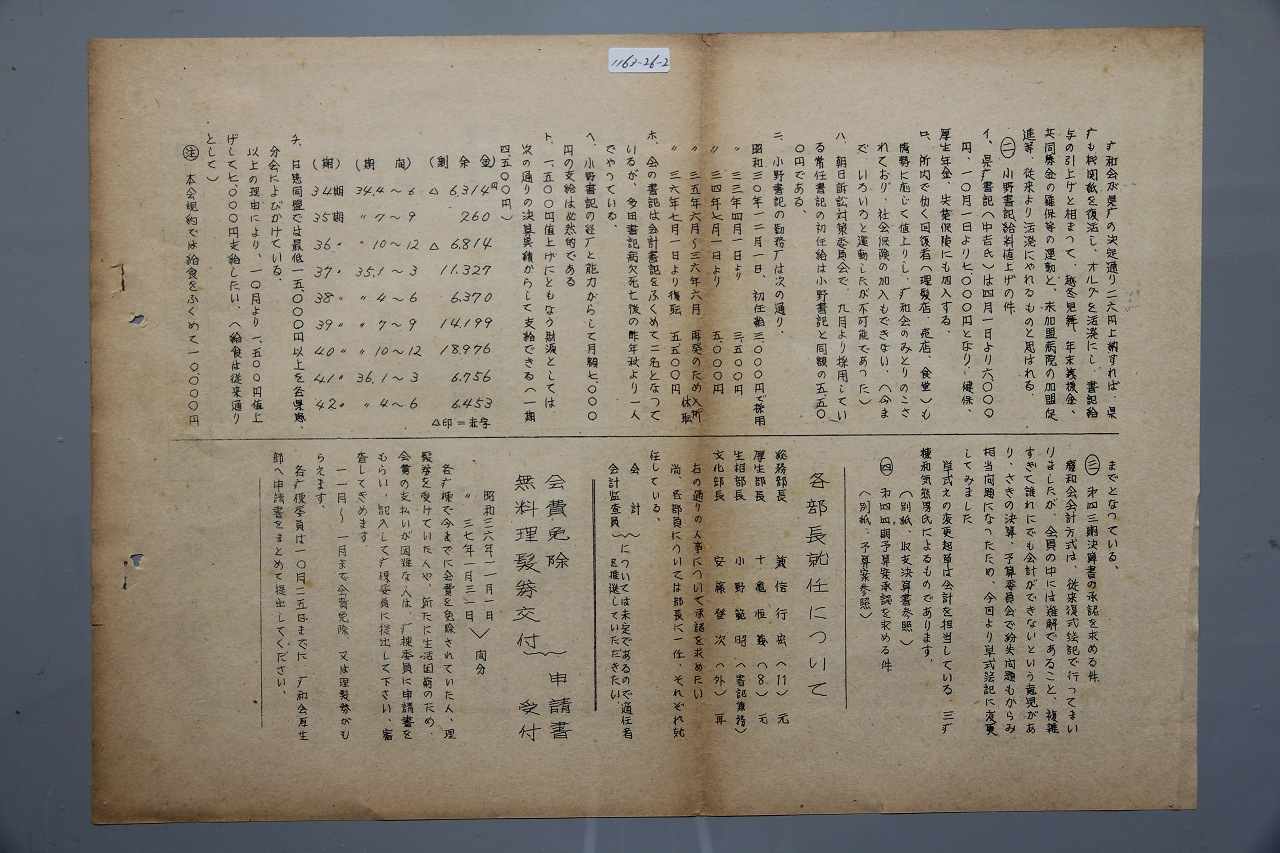 1163-26-2
疒和会が県疒の決定通り二六円上納すれば、県
疒も機関紙を復活し、オルグを活溌にし、書記給
与の引上げと相まつて、越冬見舞、年末義援金、
共同募金の確保等の運動と、未加盟病院の加盟促
進等、従来より活溌にやれるものと思はれる。
㊁ 小野書記給料値上げの件
イ、県疒書記(中吉氏)は四月一日より六〇〇〇
円、一〇月一日より七〇〇〇円となり、健保、
厚生年金、失業保険にも加入する。
ロ、所内で仂く回復者(理髪店、売店、食堂)も
情勢に応じて値上りし、疒和会のみとりのこさ
れており、社会保険の加入もできない、(今ま
で、いろいろと運動したが不可能であった)
ハ、朝日訴訟対策委員会で、九月より採用してい
る常任書記の初任給は小野書記と同額の五五〇
〇円である、
ニ、小野書記の勤務疒は次の通り、
昭和三〇年一二月一日、初任給三〇〇〇円で採用
〃 三三年四月一日より 三、五〇〇円
〃 三四年七月一日より 五、〇〇〇円
〃 三五年六月〜三六年六月 再発のため入所休職
〃 三六年七月一日より復職 五、五〇〇円
ホ、会の書記は会計書記をふくめて二名となつて
いるが、多田書記病欠死亡後の昨年秋より一人
でやつている、
ヘ、小野書記の経疒と能力からして月額七、〇〇〇
円の支給は必然的である
ト、一、五〇〇円値上げにともなう財源としては
次の通りの決算実績からして支給できる(一期
四、五〇〇円)
(期) (期 間) (剰余金)
34期 34.4〜6 △ 6.314円
35期 〃 7〜9 260
36〃 〃 10〜12 △ 6.814
37〃 35.1〜3 11.327
38〃 〃 4〜6 6.370
39〃 〃 7〜9 14.199
40〃 〃 10〜12 18.976
41〃 36.1〜3 6.756
42〃 〃 4〜6 6.453
△印=赤字
チ、日患同盟では最低一五、〇〇〇円以上を各県患、
分会によびかけている、
以上の理由により、一〇月より一、五〇〇円値上
げして七、〇〇〇円支給したい、(給食は従来通り
として)
㊟ 本会規約では給食をふくめて一〇、〇〇〇円
までとなつている、
㊂ 第四三期決算書の承認を求める件
療和会会計方式は、従来復式絵記で行ってまい
りましたが、会員の中には難解であること、複雑
すぎて誰れにでも会計ができないという意見があ
り、さきの決算、予算委員会で紛失問題もからみ
相当問題になったため、今回より単式絵記に変更
してみました
単式えの変更起草は会計を担当している、三疒
棟和気態男氏によるものであります、
(別紙、収支決算書参照)
㊃ 第四四期予算案承認を求める件
(別紙、予算案参照)
各部長就任について
総務部長 兼信行宏(11) 元
厚生部長 十亀恒 (8) 元
生相部長 小野範昭(書記兼務)
文化部長 安藤登次(外) 再
右の通りの人事について承認を求めたい
尚、各部員については部長に一任、それぞれ就
任している、
会計
会計監査員 については未定であるので適任者を推選していただきたい、
会費免除
無料理髪券交付 申請書受付
昭和三六年一一月一日
〃 三七年一月三一日 間分
各疒棟で今までに会費を免除されていた人、理
髪券を受けていた人や、新たに生活困窮のため、
会費の支払いが困難な人は、疒棟委員に申請書を
もらい、記入して疒棟委員に提出して下さい、審
査してきめます
一一月〜一月まで会費免除、又は理髪券がも
らえます、
各疒棟委員は一〇月二五日までに、疒和会厚生
部へ申請書をまとめて提出してください、